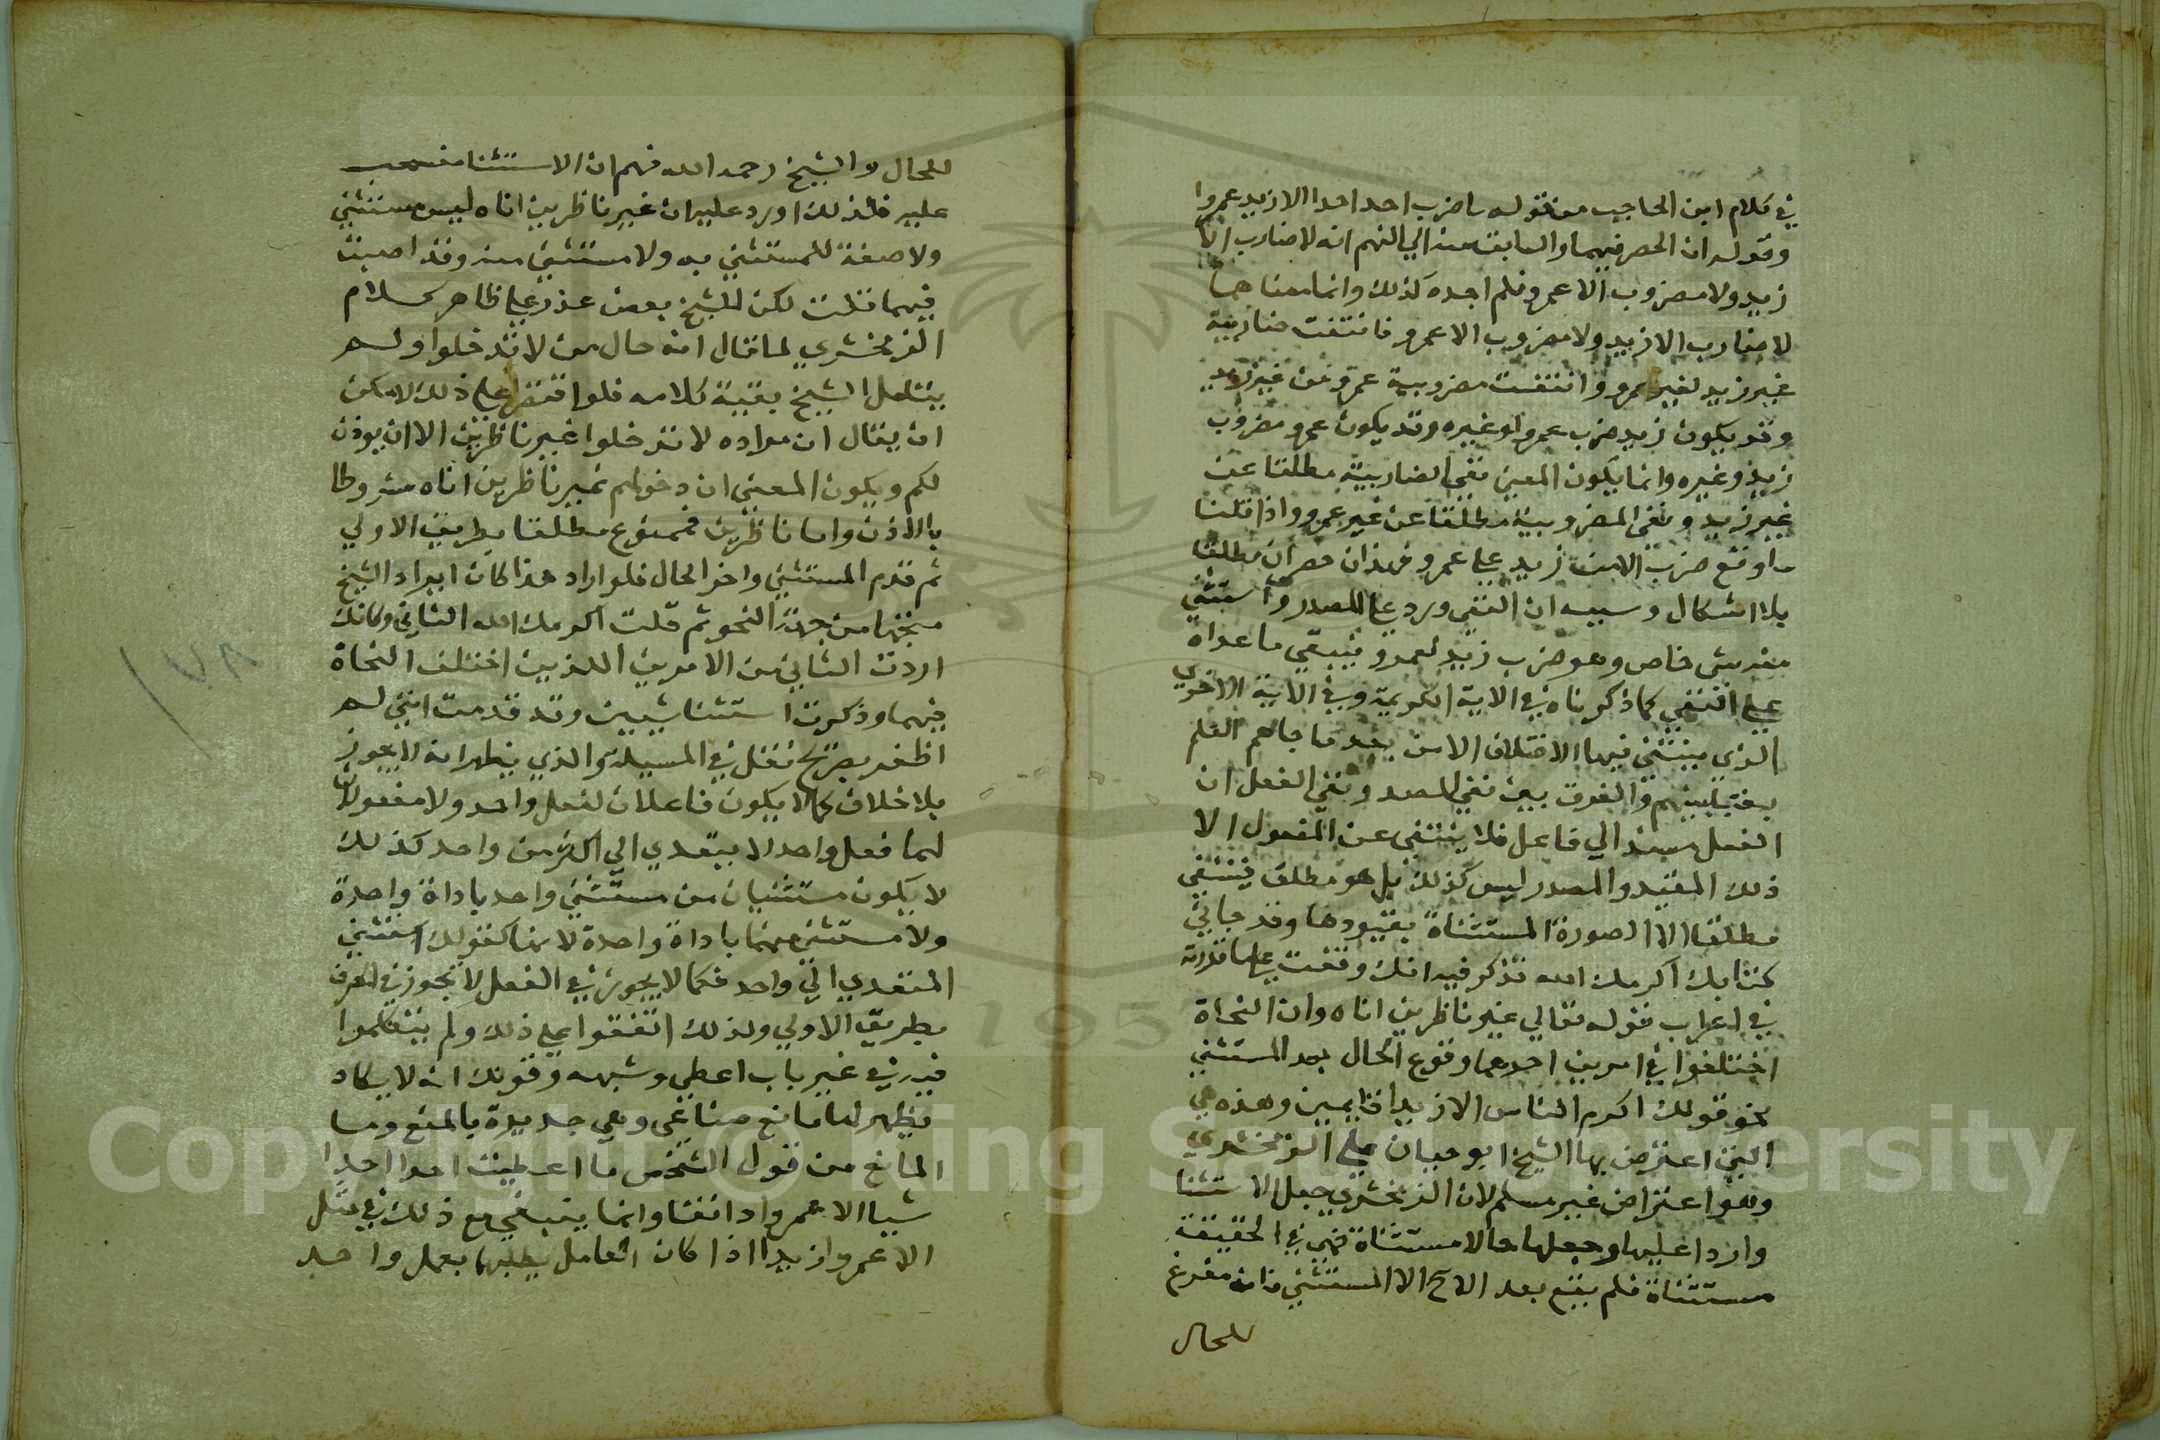 في كلام ابن الحاجب من قوله ما ضرب احد احدا الا زيد عمروا
وقوله ان الحصر فيهما والسابق منه الي الفهم انه لا ضارب الا
زيد ولا مضروب الا عمرو فلم اجده كذلك وانما معناهما
لا ضارب الا زيد ولا مضروب الا عمرو فانتفت ضاربية
غير زيد لغير عمرو وانتفت مضروبية عمرو من غير زيد
وقد يكون زيد ضرب عمروا وغيره وقد يكون عمرو مضروب
زيد وغيره وانما يكون المعني نفي الضاربية مطلقا عن
غير زيد ونفي المضروبية مطلقا عن غير عمرو واذا قلنا
ما وقع ضرب الا من زيد علي عمرو فهذان حصران مطلقا
بلا اشكال وسببه ان النفي ورد علي المصدر واستثني
منه شي خاص وهو ضرب زيد لعمرو فيبقي ما عداه
علي النفي كما ذكرناه في الاية الكريمة وفي الاية الاخري
الذي ينتفي فيها الاختلاف الا من بعد ما جاهم العلم
بغيا بينهم والفرق بين نفي المصدر ونفي الفعل ان
الفعل مسند الي فاعل فلا ينتفي عن المفعول الا
ذلك المقيد والمصدر ليس كذلك بل هو مطلق فينتفي
مطلقا الا الصورة المستثناة بقيودها وقد جاني
كتابك اكرمك الله تذكر فيه انك وقفت علي ما قررته
في اعراب قوله تعالي غير ناظرين اناه وان النحاة
اختلفوا في امرين احدهما وقوع الحال بعد المستثني
نحو قولك اكرم الناس الا زيدا قايمين وهذه هي
التي اعترض بها الشيخ ابو حيان علي الزمخشري
وهو اعتراض غير مسلم لان الزمخشري جعل الاستثنا
واردا عليها وجعلها حالا مستثناة فهي في الحقيقة
مستثناة فلم يقع بعد الا ح الا المستثني فانه مفرغ
للحال
للحال والشيخ رحمه الله فهم ان الاستثنا منسحب
عليه فلذلك اورد عليه ان غير ناظرين اناه ليس مستثني
ولا صفة للمستثني به ولا مستثني منه وقد اصبت
فيما قلت لكن للشيخ بعض عذر علي ظاهر كلام
الزمخشري لما قال انه حال من لا تدخلوا ولم
يتامل الشيخ بقية كلامه فلو اقتصر علي ذلك لامكن
ان يقال ان مراده لا تدخلوا غير ناظرين الا ان يوذن
لكم ويكون المعني ان دخولهم غير ناظرين اناه مشروطا
بالاذن واما ناظرين فممنوع مطلقا بطريق الاولي
ثم قدم المستثني واخر الحال فلو اراد هذا كان ايراد الشيخ
متجها من جهة النحو ثم قلت اكرمك الله الثاني وكانك
اردت الثاني من الامرين اللذين اختلف النحاة
فيهما وذكرت استثنا شيين وقد قدمت انني لم
اظفر بصريح نقل في المسيلة والذي يظهر انه لا يجوز
بلا خلاف كما لا يكون فاعلان لفعل واحد ولا مفعولان
لها فعل واحد لا يتعدي الي اكثر من واحد كذلك
لا يكون مستثنيان من مستثني واحد باداة واحدة
ولا مستثني منهما باداة واحدة لانها كقولك استثني
المتعدي الي واحد فكما لا يجوز في الفعل لا تجوز في الحرف
بطريق الاولي ولذلك اتفقوا علي ذلك ولم يتكلموا
فيه في غير باب اعطي وشبهه وقولك انه لا يكاد
يظهر لها مانع صناعي وهي جديرة بالمنع وما
المانع من قول الشخص ما اعطيت احدا احدا
شيا الا عمروا دانقا وانما ينبغي مع ذلك في مثل
الا عمروا زيدا اذا كان العامل يطلبهما بعمل واحد
١٧٨
Copyright © King Saud University
195